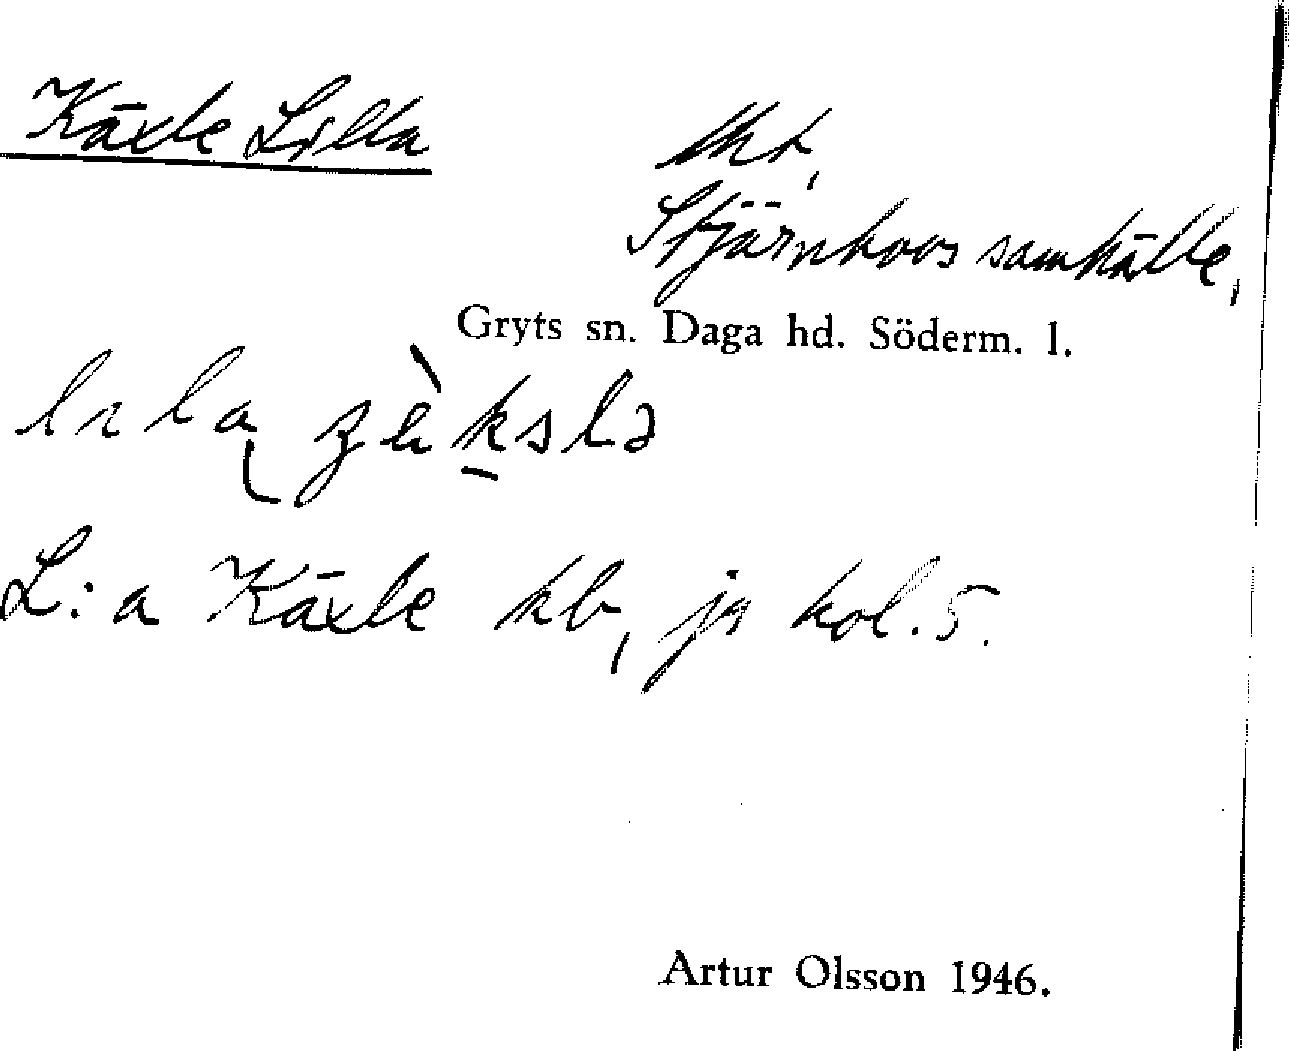 Käxle Lilla
lht,
Stjärnhovs samhälle,
Gryts sn. Daga hd. Söderm. l.
L:a Käxle kb, js kol. 5.
Artur Olsson 1946.